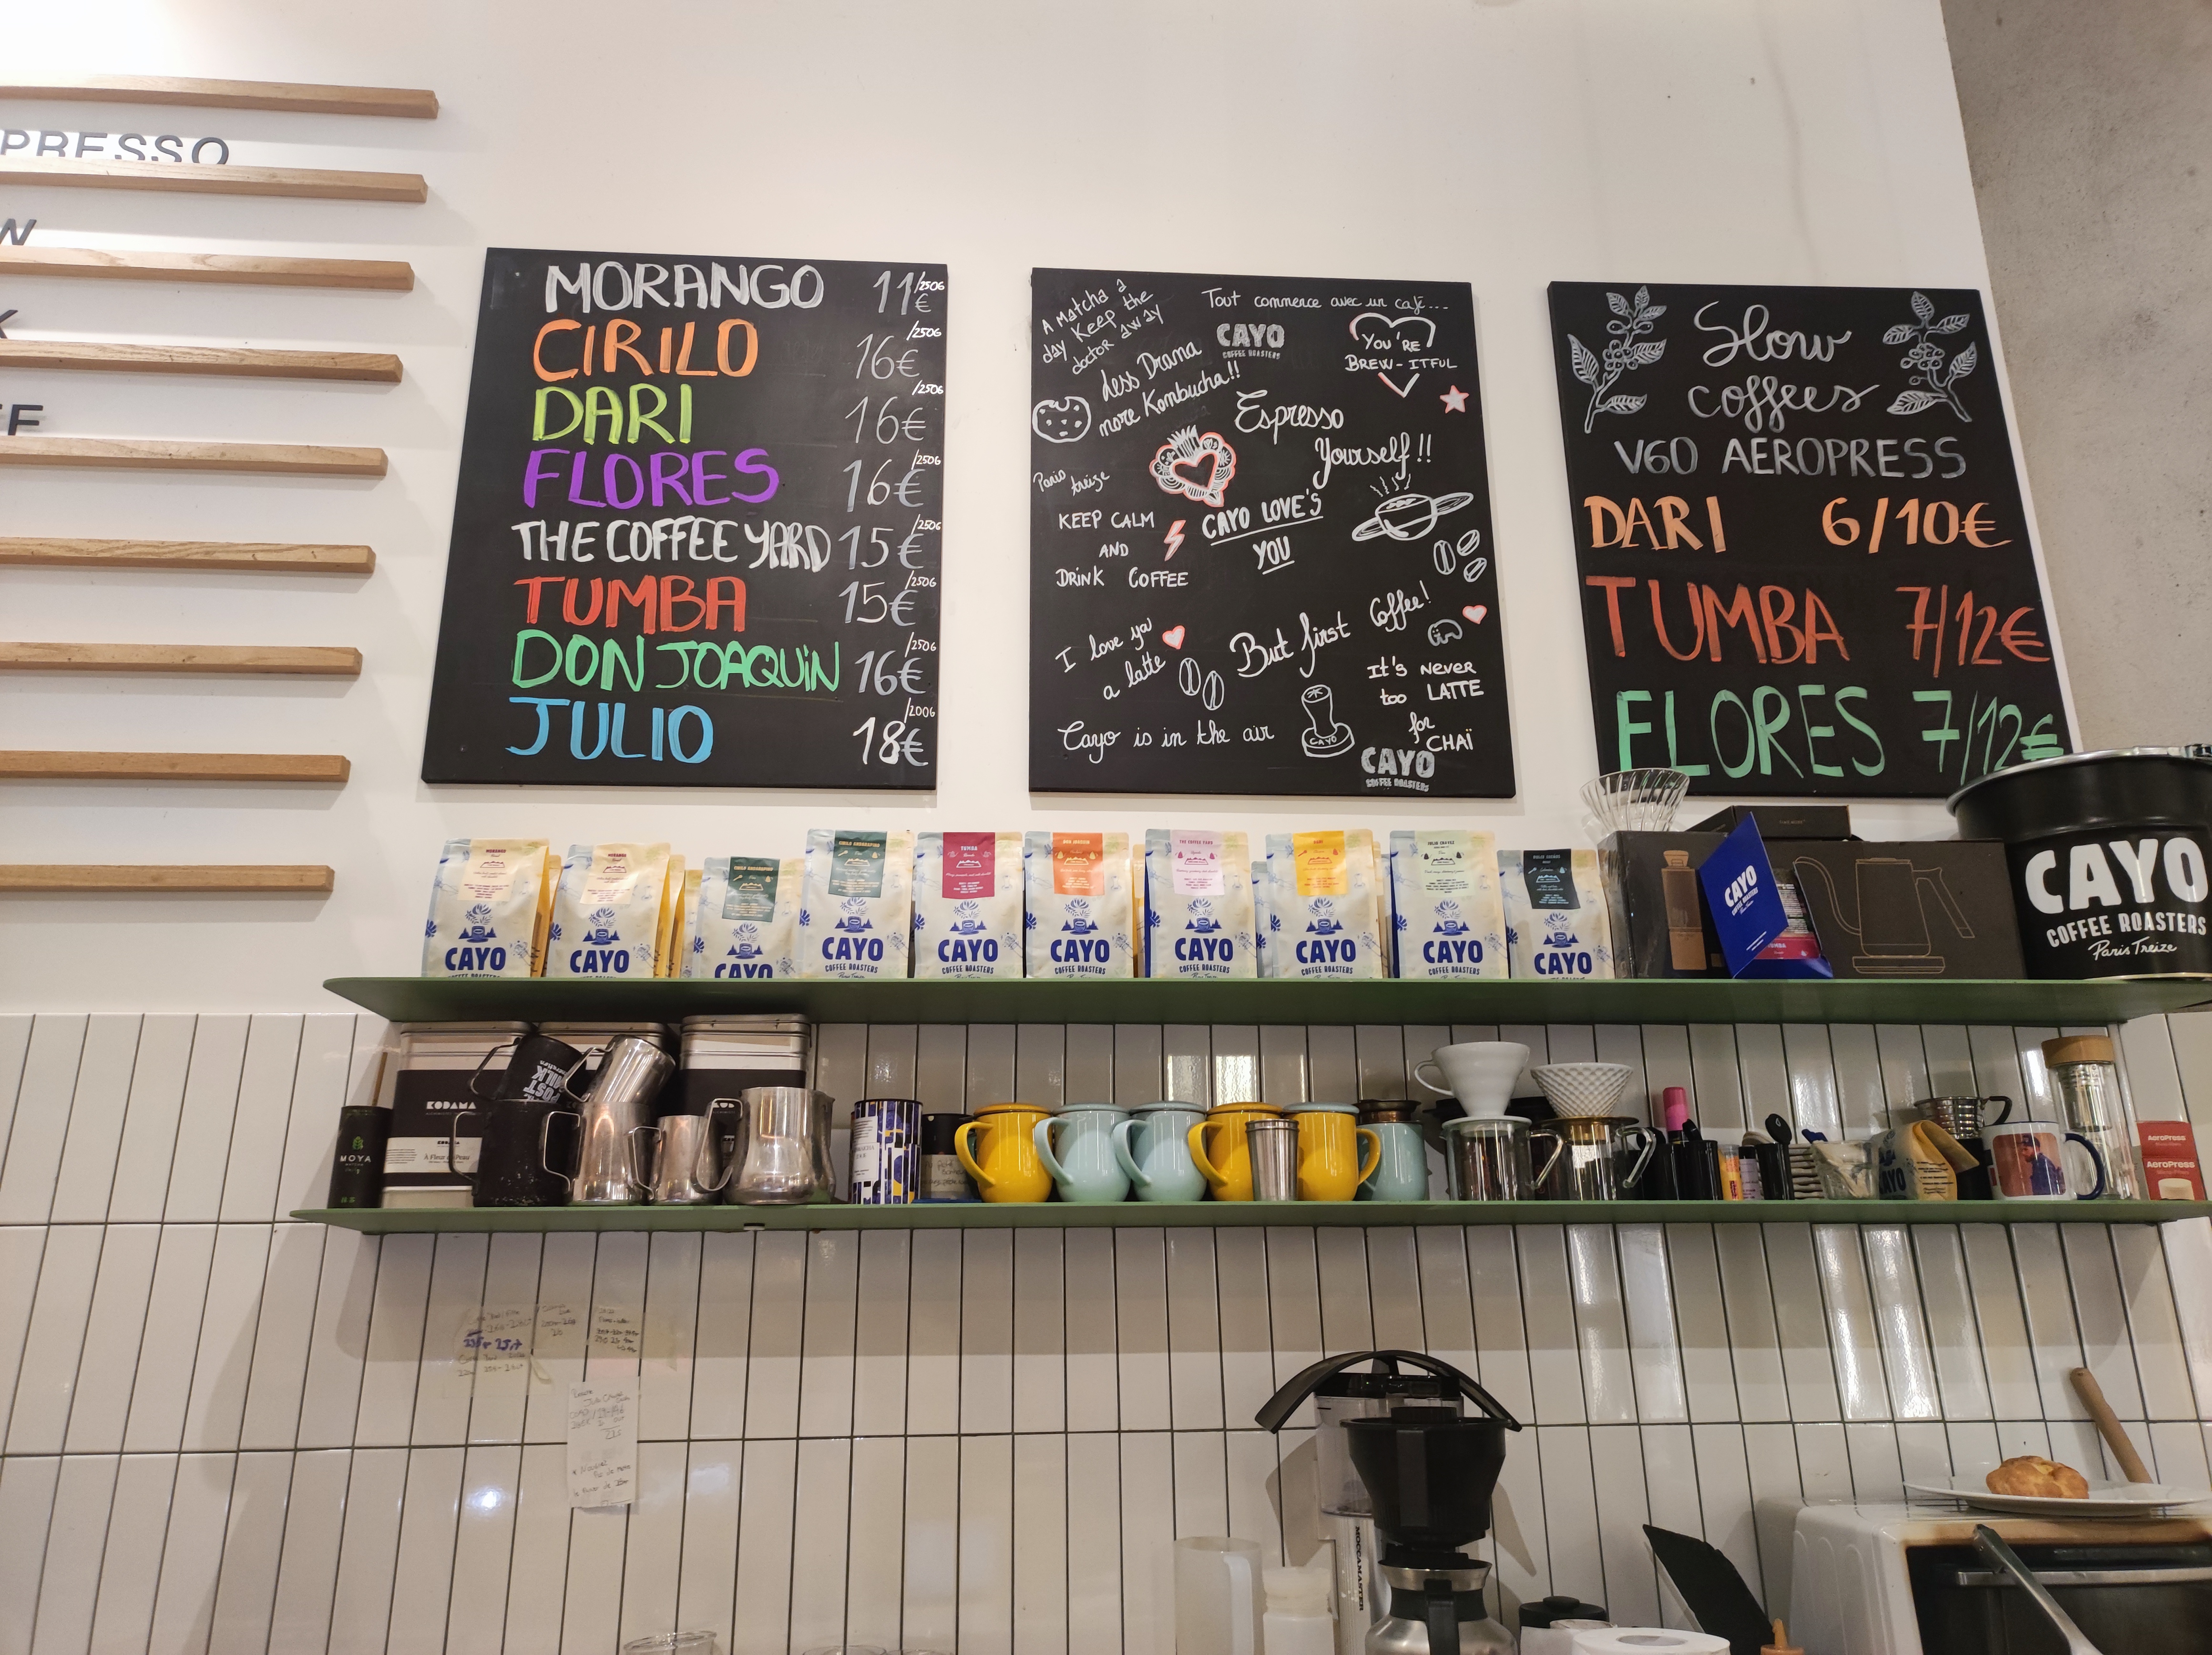 PRESSO
MORANGO 11€/250G
CIRILO 16€/250G
DARI 16€/250G
FLORES 16€/250G
THE COFFEE YARD 15€/250G
TUMBA 15€/250G
DON JOAQUiN 16€/250G
JULIO 18€/200G
A Matcha a
day Keep the
doctor away
Tout commence avec un café...
CAYO
COFFEE ROASTERS
YOU'RE
BREW-ITFUL
Less Drama
more Kombucha!!
Espresso
Yourself!!
Paris
treize
KEEP CALM
AND
DRiNK COFFEE
CAYO LOVE'S
YOU
I love ya
a latte
But first
Coffee!
It's NEVER
too LATTE
for
CHAÏ
Cayo is in the air
CAYO
CAYO
COFFEE ROASTERS
Slow
coffees
V60 AEROPRESS
DARI 6/10€
TUMBA 7/12€
FLORES 7/12€
CAYO
CAYO
CAYO
CAYO
COFFEE ROASTERS
TUMBA
CAYO
COFFEE ROASTERS
CAYO
COFFEE ROASTERS
THE COFFEE YARD
CAYO
COFFEE ROASTERS
CAYO
COFFEE ROASTERS
CAYO
COFFEE ROASTERS
CAYO
COFFEE ROASTERS
CAYO
COFFEE ROASTERS
CAYO
COFFEE ROASTERS
Paris Treize
MOYA
MATCHA
KODAMA
À Fleur de Peau
CAYO
AeroPress
AeroPress
MOCCAMASTER